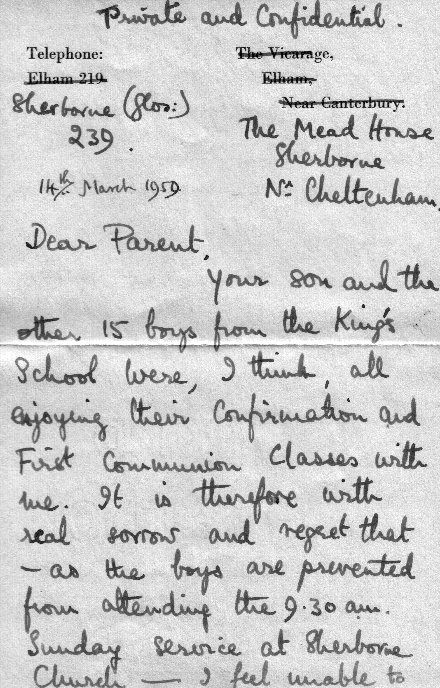 Private and Confidential.
Telephone:
Elham 219.
Sherborne (Glos:)
239.
The Vicarage,
Elham,
Near Canterbury.
The Mead House
Sherborne
Nr Cheltenham.
14th March 1959
Dear Parent,
Your son and the
other 15 boys from the King's
School were, I think, all
enjoying their Confirmation and
First Communion Classes with
me. It is therefore with
real sorrow and regret that
– as the boys are prevented
from attending the 9.30 am.
Sunday service at Sherborne
Church — I feel unable to